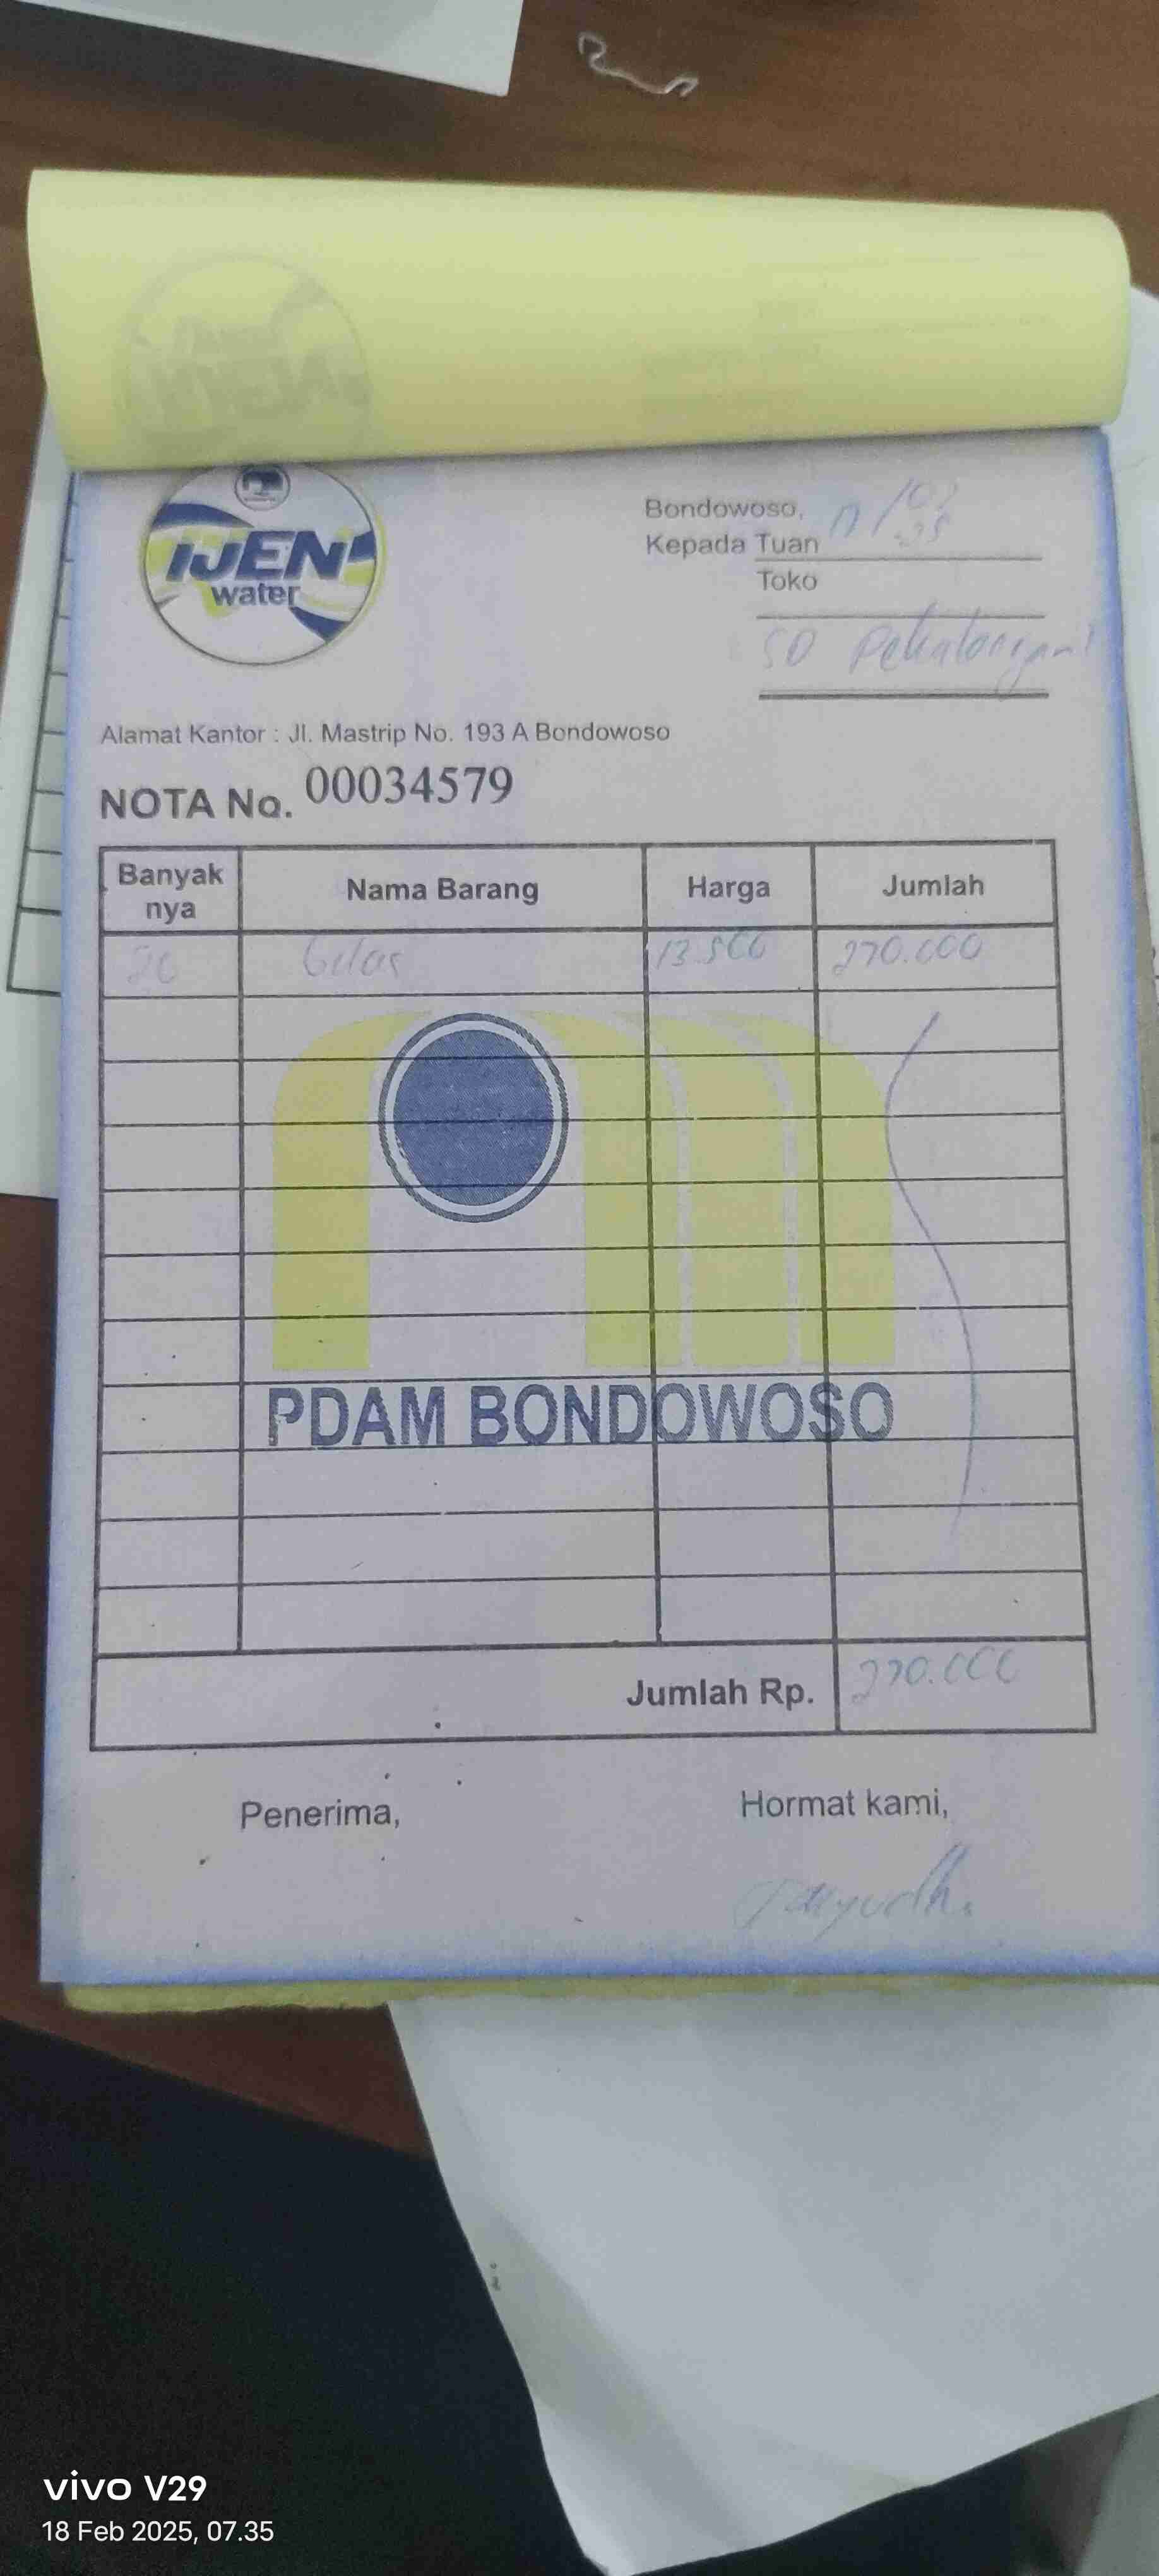 IJEN
water
Bondowoso, 17/02
25
Kepada Tuan
Toko
SD Pekalongan 1
Alamat Kantor : Jl. Mastrip No. 193 A Bondowoso
NOTA No. 00034579
Banyak nya Nama Barang Harga Jumlah
20 Gelas 13.500 270.000
PDAM BONDOWOSO
Jumlah Rp. 270.000
Penerima,
Hormat kami,
vivo V29
18 Feb 2025, 07.35